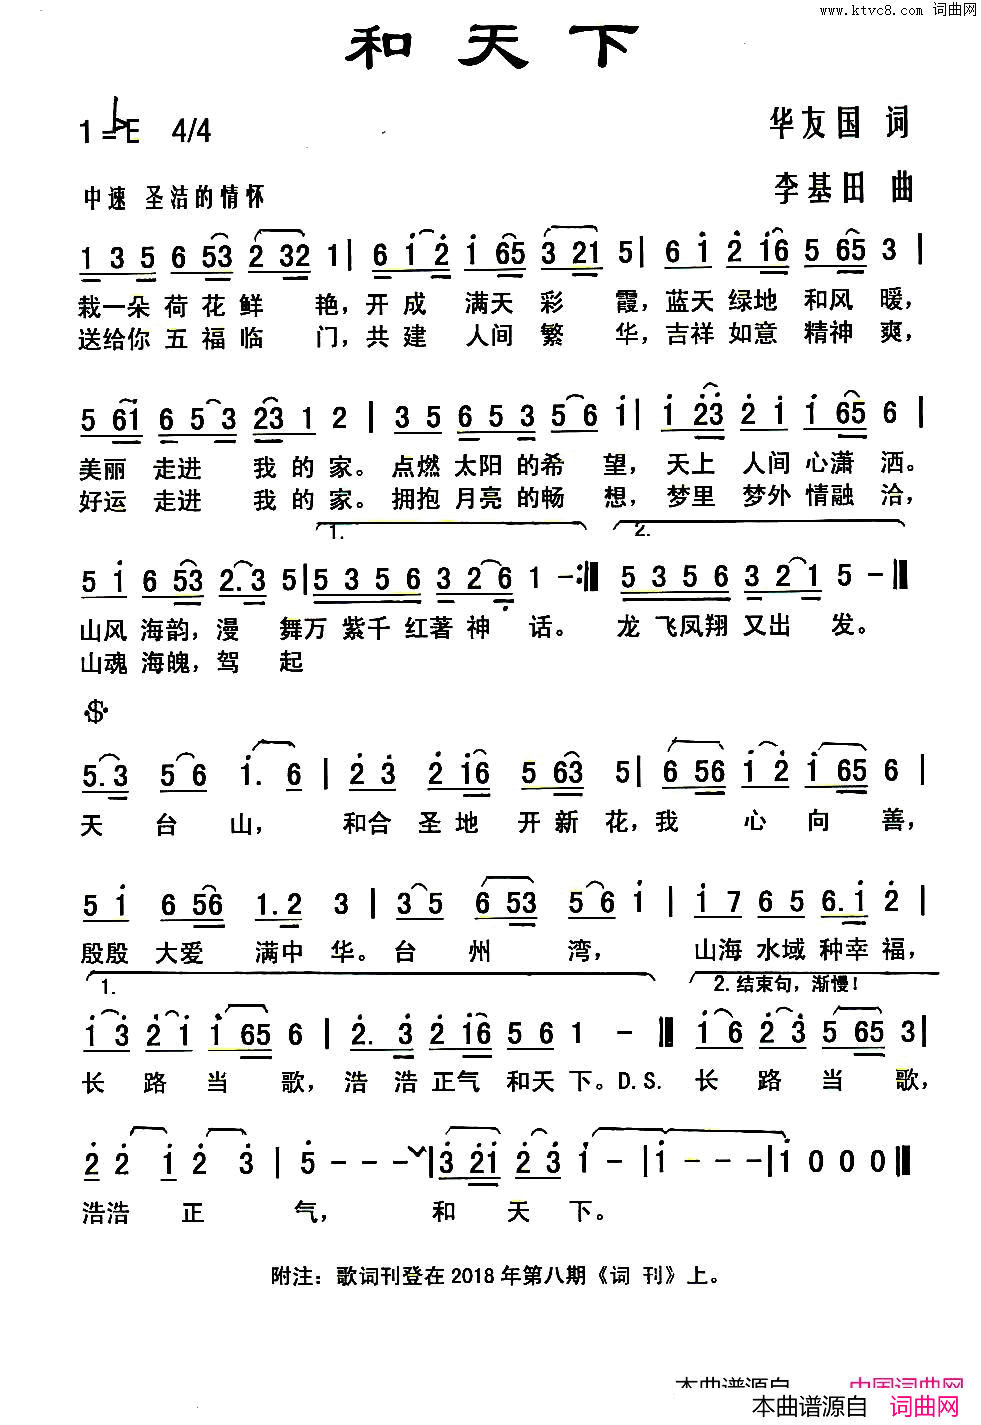 www.ktvc8.com 词曲网
和天下
1=♭E 4/4
华友国 词
中速 圣洁的情怀
李基田 曲
1 3 5 6 53 2 32 1 | 6 1 2 1 65 3 21 5 | 6 1 2 16 5 65 3 |
栽一朵 荷 花 鲜 艳，开 成 满天 彩 霞，蓝天 绿地 和风 暖，
送给你 五 福 临 门，共 建 人间 繁 华，吉祥 如意 精神 爽，
5 61 6 5 3 23 1 2 | 3 5 6 5 3 5 6 1 | 1 23 2 1 1 65 6 |
美丽 走进 我 的 家。点燃 太阳 的希 望，天上 人间 心潇 洒。
好运 走进 我 的 家。拥抱 月亮 的畅 想，梦里 梦外 情融 洽，
1. 2.
5 1 6 53 2.3 5 | 5 3 5 6 3 2 6 1 - :‖ 5 3 5 6 3 2 1 5 - ‖
山风 海韵，漫 舞万 紫千 红著 神 话。 龙 飞凤翔 又出 发。
山魂 海魄，驾 起
𝄋
5.3 5 6 1. 6 | 2 3 2 16 5 63 5 | 6 56 1 2 1 65 6 |
天 台 山， 和合 圣 地 开 新 花，我 心 向 善，
5 1 6 56 1.2 3 | 3 5 6 53 5 6 1 | 1 7 6 5 6.1 2 |
殷殷 大爱 满中 华。台 州 湾， 山海 水域 种幸 福，
1. 2.结束句，渐慢！
1 3 2 1 1 65 6 | 2. 3 2 16 5 6 1 - ‖ 1 6 2 3 5 65 3 |
长 路 当 歌，浩 浩 正气 和天 下。D.S. 长 路 当 歌，
2 2 1 2 3 | 5 - - - | 3 21 2 3 1 - | 1 - - - | 1 0 0 0 ‖
浩浩 正 气， 和 天 下。
附注：歌词刊登在2018年第八期《词 刊》上。
本曲谱源自 中国词曲网
本曲谱源自 词曲网